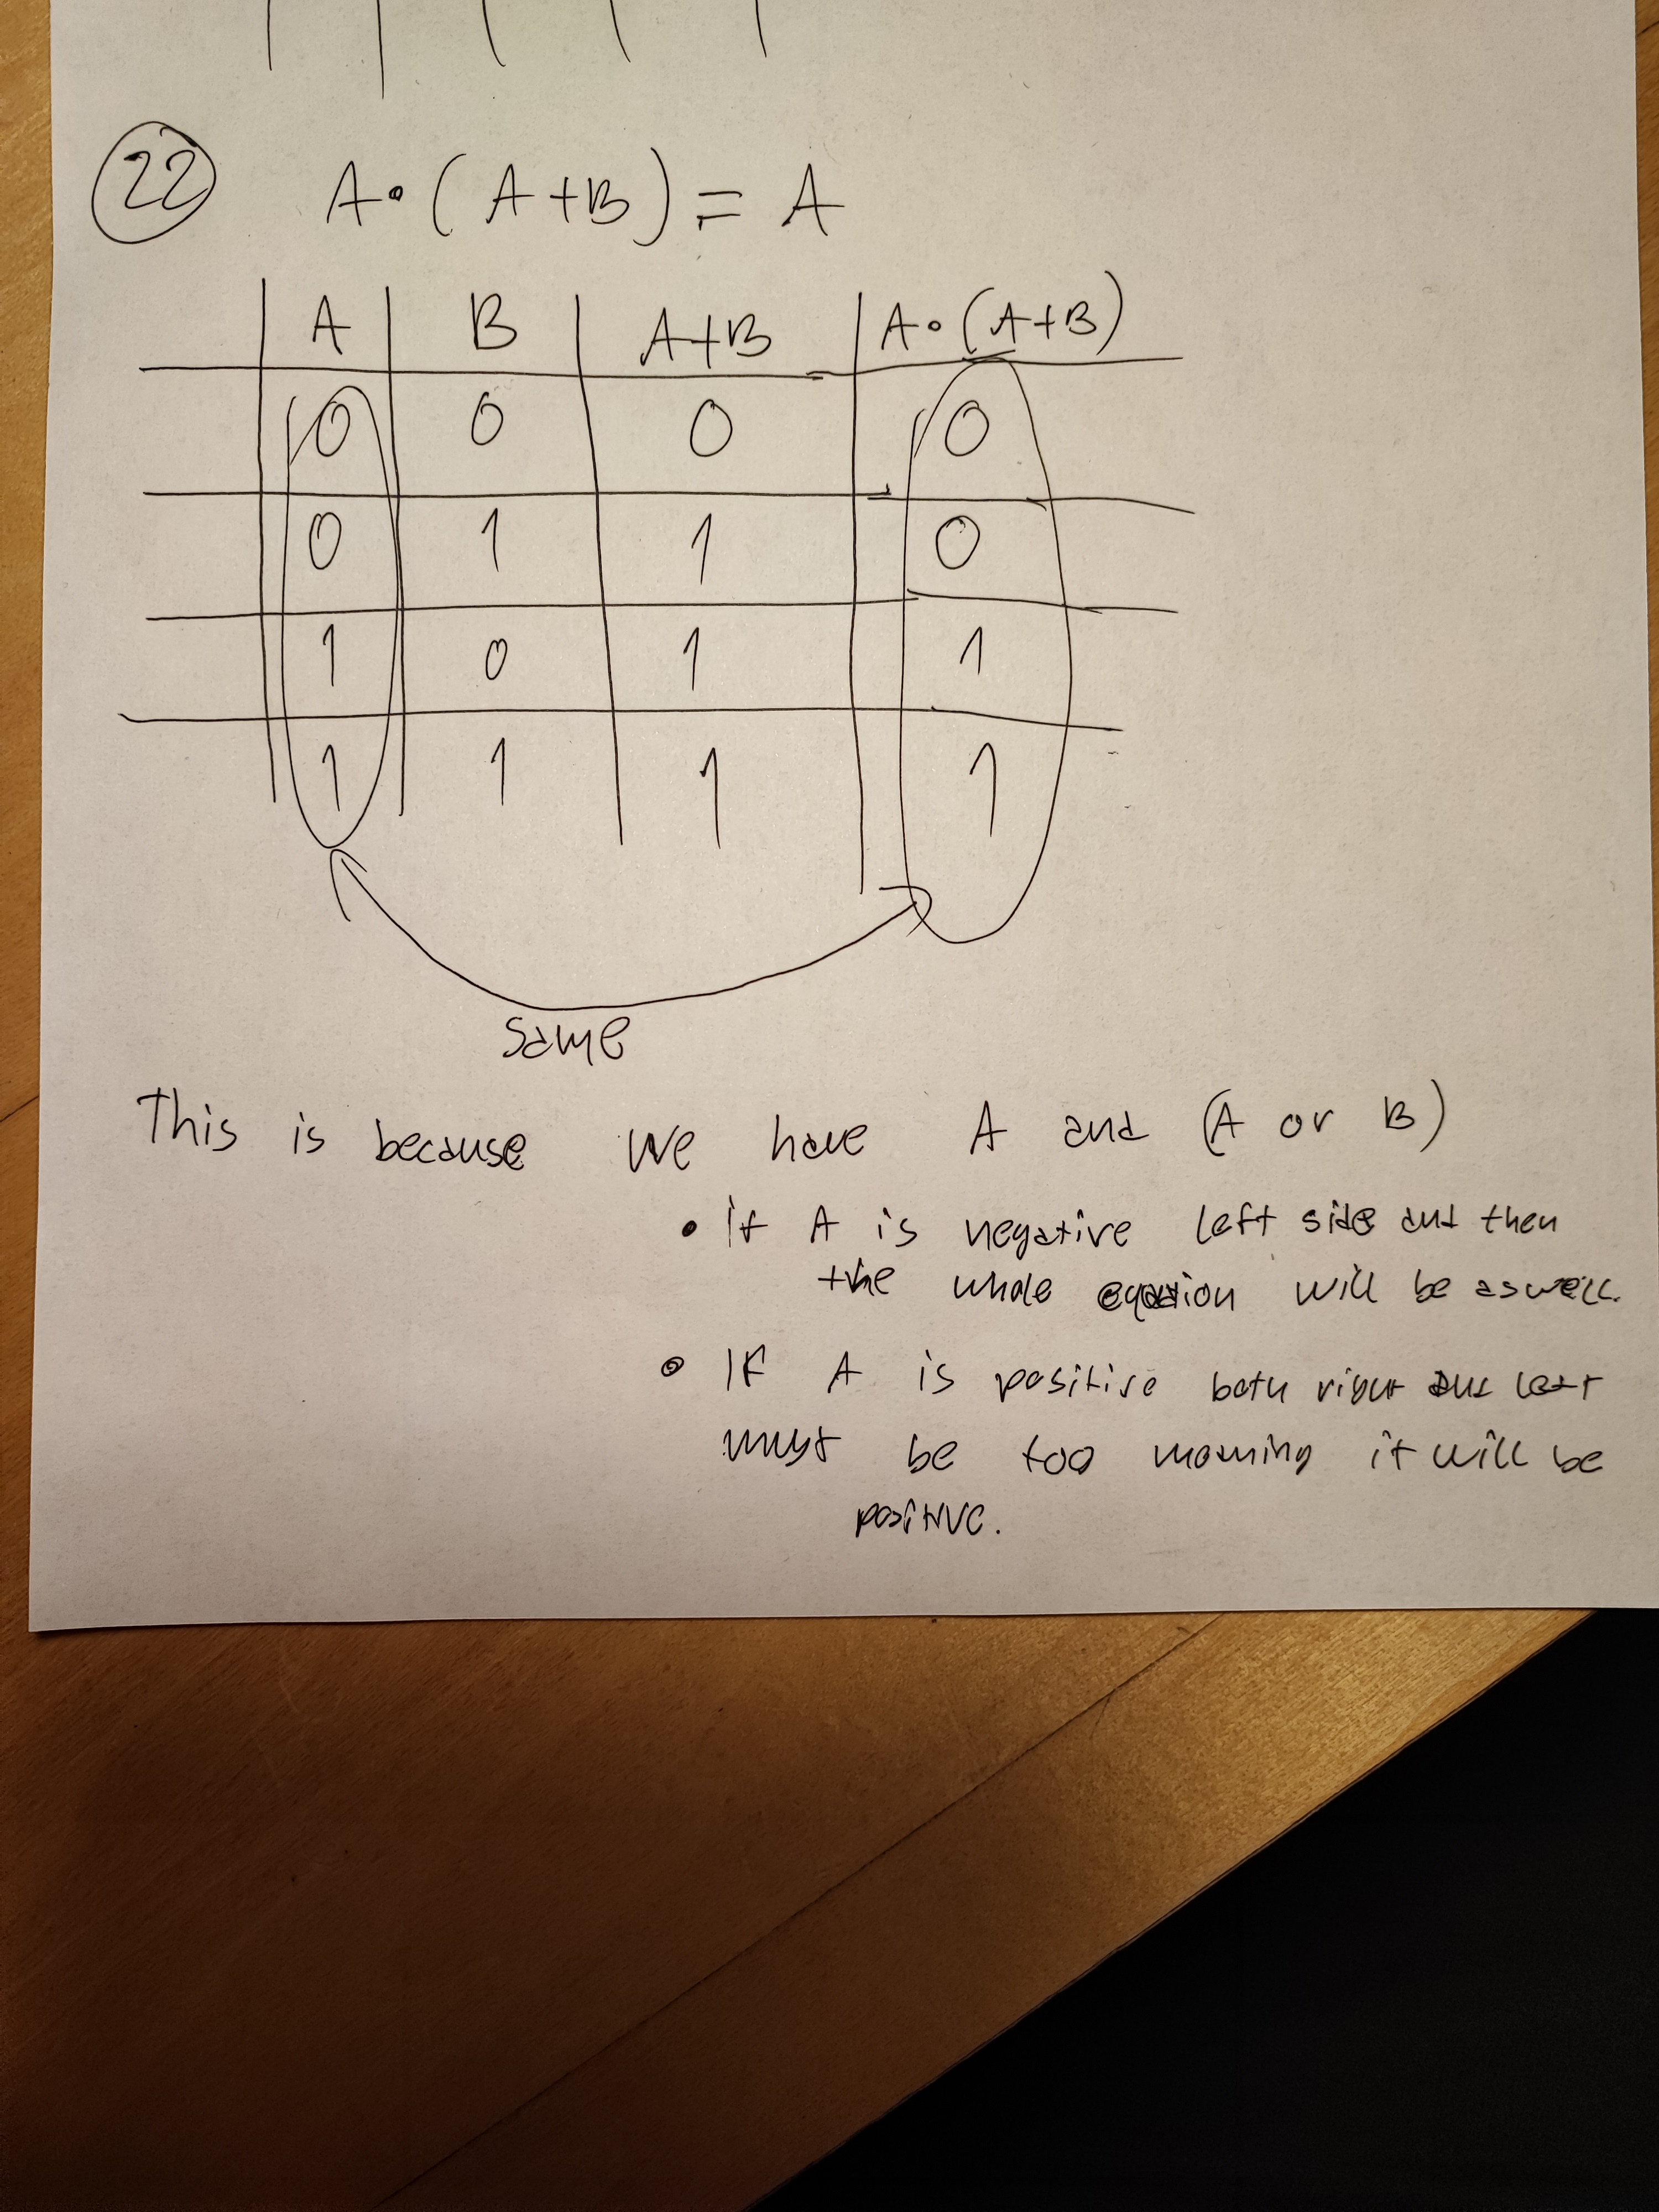 22 A·(A+B)=A
A B A+B A·(A+B)
0 0 0 0
0 1 1 0
1 0 1 1
1 1 1 1
same
This is because we have A and (A or B)
• If A is negative left side and then
the whole equation will be aswell.
• If A is positive both right and left
must be too meaning it will be
positive.